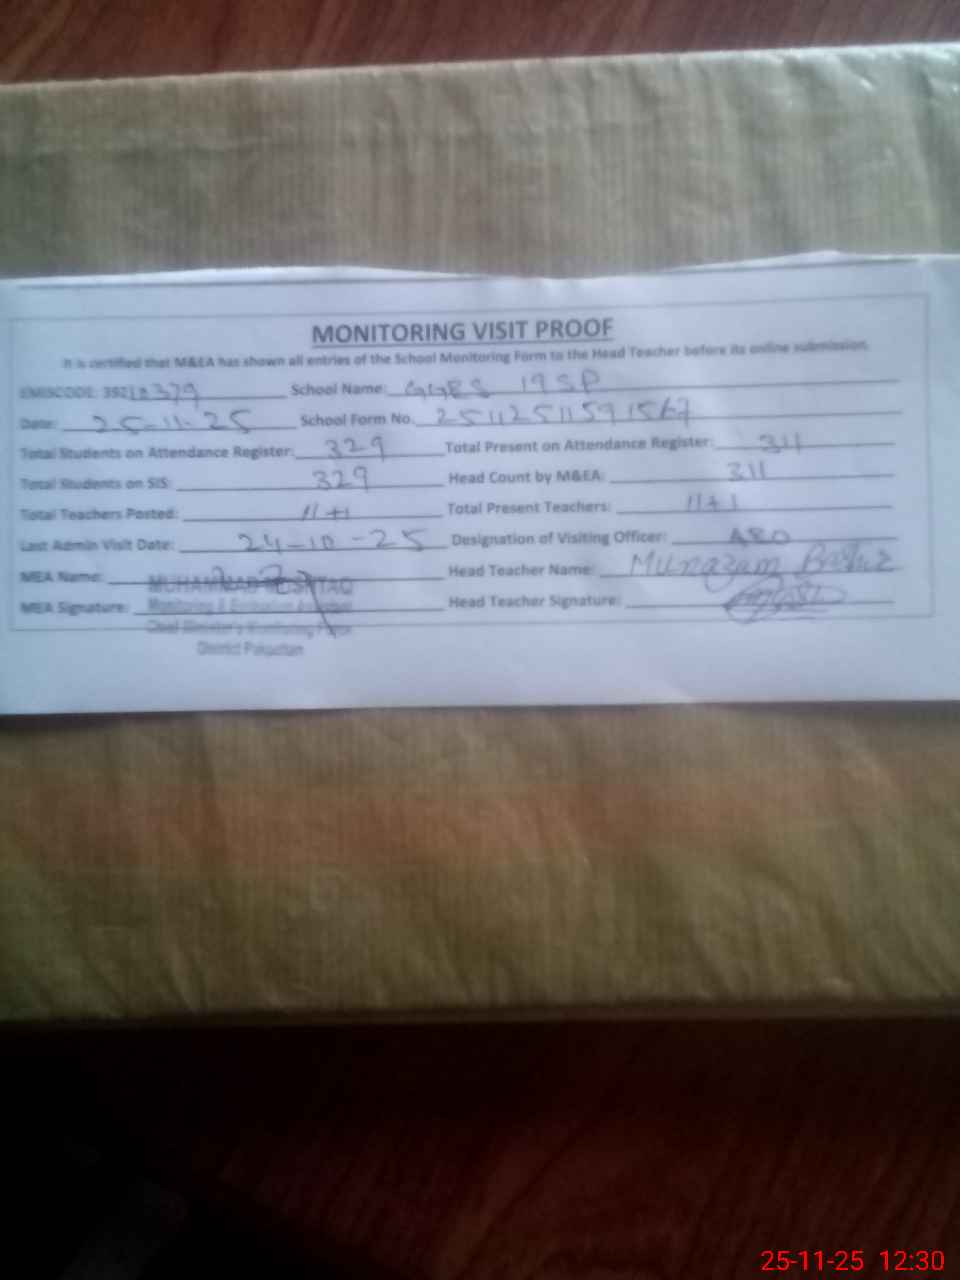 MONITORING VISIT PROOF
It is certified that M&EA has shown all entries of the School Monitoring Form to the Head Teacher before its online submission.
EMISCODE: 379 School Name: GGES 19 SP
Date: 25-11-25 School Form No. 2511251159 1567
Total Students on Attendance Register: 329 Total Present on Attendance Register: 311
Total Students on SIS: 329 Head Count by M&EA: 311
Total Teachers Posted: 11+1 Total Present Teachers: 11+1
Last Admin Visit Date: 24-10-25 Designation of Visiting Officer: AEO
MEA Name: MUHAMMAD Head Teacher Name: Munazam
Monitoring & Evaluation
MEA Signature: Head Teacher Signature:
Chief Minister's Monitoring Force
District Pakpattan
25-11-25 12:30